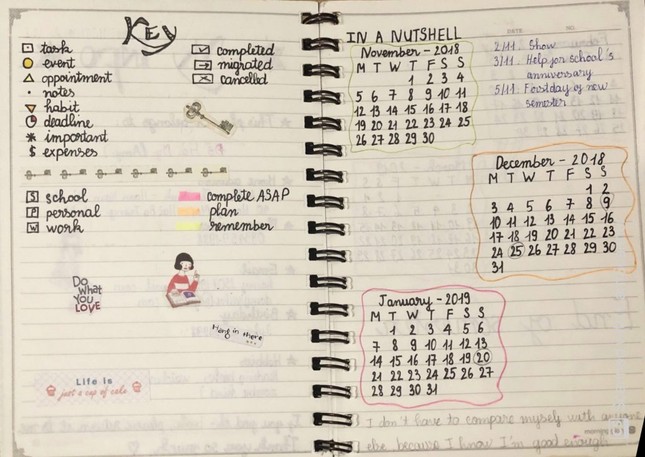 KEY
task
event
appointment
notes
habit
deadline
* important
$ expenses
completed
migrated
cancelled
S school
P personal
W work
complete ASAP
plan
remember
Do
What
You
LOVE
Hang in there...
Life is
just a cup of cake
IN A NUTSHELL
November - 2018
M T W T F S S
1 2 3 4
5 6 7 8 9 10 11
12 13 14 15 16 17 18
19 20 21 22 23 24 25
26 27 28 29 30
DATE NO.
2/11. Show
3/11. Help for school's
anniversary
5/11. Firstday of new
semester
December - 2018
M T W T F S S
1 2
3 4 5 6 7 8 9
10 11 12 13 14 15 16
17 18 19 20 21 22 23
24 25 26 27 28 29 30
31
January - 2019
M T W T F S S
1 2 3 4 5 6
7 8 9 10 11 12 13
14 15 16 17 18 19 20
21 22 23 24 25 26 27
28 29 30 31
I don't have to compare myself with anyone
else because I know I'm good enough